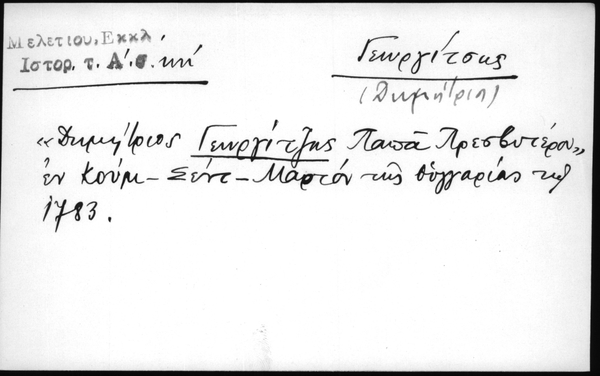 Μελετίου, Εκκλ
Ιστορ. τ. Α'. σ. κή
Γεωργίτσης
(Δημήτριη)
«Δημήτριος Γεωργίτζης Παπᾶ Πρεσβυτέρου»
ἐν Κούμ-Σέντ-Μαρτόν τῆς Οὑγγαρίας τῷ
1783.